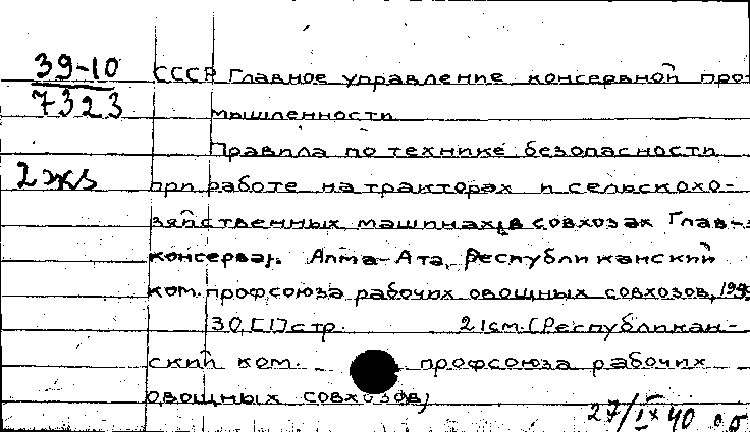 39-10
7323
2 экз
СССР Главное управление консервной про-
мышленности
Правила по технике безопасности
при работе на тракторах и сельскохо-
зяйственных машинах в совхозах Глав-
консерва. Алма-Ата, Республиканский
ком. профсоюза рабочих овощных совхозов,
30,[1] стр. 21см. (Республикан-
ский ком. профсоюза рабочих
овощных совхозов)
27/IX 40